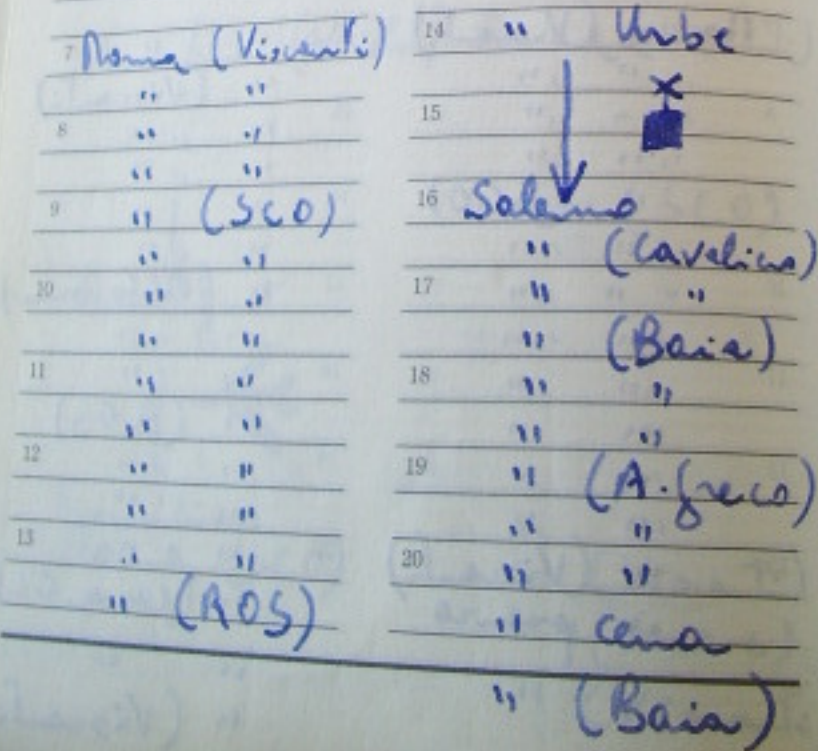 7 Roma (Visconti)
" "
8 " "
" "
9 " (SCO)
" "
10 " "
" "
11 " "
" "
12 " "
" "
13 " "
" (ROS)
14 " Urbe
15
16 Salerno
" (Cavaliere)
17 " "
" (Baia)
18 " "
" "
19 " (A. Greco)
" "
20 " "
" cena
" (Baia)